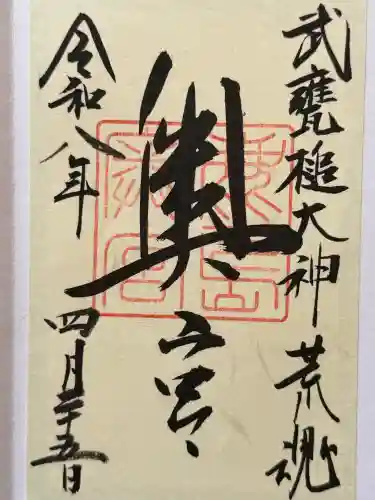 武甕槌大神 荒魂
奥宮
令和八年
四月二十五日